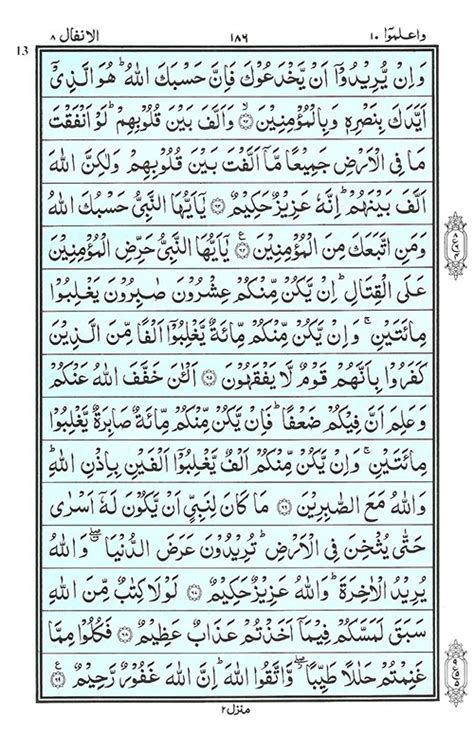 الانفال ٨
١٨٦
واعلموا ١٠
13
وَاِنْ يُّرِيْدُوْۤا اَنْ يَّخْدَعُوْكَ فَاِنَّ حَسْبَكَ اللّٰهُ ؕ هُوَ الَّذِىْۤ
اَيَّدَكَ بِنَصْرِهٖ وَبِالْمُؤْمِنِيْنَ ۙ‏﴿۶۲﴾ وَاَلَّفَ بَيْنَ قُلُوْبِهِمْ ؕ لَوْ اَنْفَقْتَ
مَا فِى الْاَرْضِ جَمِيْعًا مَّاۤ اَلَّفْتَ بَيْنَ قُلُوْبِهِمْ وَلٰكِنَّ اللّٰهَ
اَلَّفَ بَيْنَهُمْ ؕ اِنَّهٗ عَزِيْزٌ حَكِيْمٌ ﴿۶۳﴾ يٰۤاَيُّهَا النَّبِىُّ حَسْبُكَ اللّٰهُ
وَمَنِ اتَّبَعَكَ مِنَ الْمُؤْمِنِيْنَ ﴿۶۴﴾ يٰۤاَيُّهَا النَّبِىُّ حَرِّضِ الْمُؤْمِنِيْنَ
عَلَى الْقِتَالِ ؕ اِنْ يَّكُنْ مِّنْكُمْ عِشْرُوْنَ صٰبِرُوْنَ يَغْلِبُوْا
مِائَتَيْنِ ۚ وَاِنْ يَّكُنْ مِّنْكُمْ مِّائَةٌ يَّغْلِبُوْۤا اَلْفًا مِّنَ الَّذِيْنَ
كَفَرُوْا بِاَنَّهُمْ قَوْمٌ لَّا يَفْقَهُوْنَ ﴿۶۵﴾ اَلْئٰنَ خَفَّفَ اللّٰهُ عَنْكُمْ
وَعَلِمَ اَنَّ فِيْكُمْ ضَعْفًا ؕ فَاِنْ يَّكُنْ مِّنْكُمْ مِّائَةٌ صَابِرَةٌ يَّغْلِبُوْا
مِائَتَيْنِ ۚ وَاِنْ يَّكُنْ مِّنْكُمْ اَلْفٌ يَّغْلِبُوْۤا اَلْفَيْنِ بِاِذْنِ اللّٰهِ ؕ
وَاللّٰهُ مَعَ الصّٰبِرِيْنَ ﴿۶۶﴾ مَا كَانَ لِنَبِىٍّ اَنْ يَّكُوْنَ لَهٗۤ اَسْرٰى
حَتّٰى يُثْخِنَ فِى الْاَرْضِ ؕ تُرِيْدُوْنَ عَرَضَ الدُّنْيَا ۖ وَاللّٰهُ
يُرِيْدُ الْاٰخِرَةَ ؕ وَاللّٰهُ عَزِيْزٌ حَكِيْمٌ ﴿۶۷﴾ لَوْلَا كِتٰبٌ مِّنَ اللّٰهِ
سَبَقَ لَمَسَّكُمْ فِيْمَاۤ اَخَذْتُمْ عَذَابٌ عَظِيْمٌ ﴿۶۸﴾ فَكُلُوْا مِمَّا
غَنِمْتُمْ حَلٰلًا طَيِّبًا ۖ وَّاتَّقُوا اللّٰهَ ؕ اِنَّ اللّٰهَ غَفُوْرٌ رَّحِيْمٌ ﴿۶۹﴾
منزل ٢